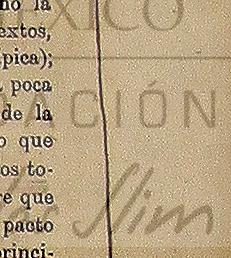 no la
extos,
pica);
poca
de la
o que
os to-
e que
pacto
princi-
MÉXICO
ACIÓN
Slim